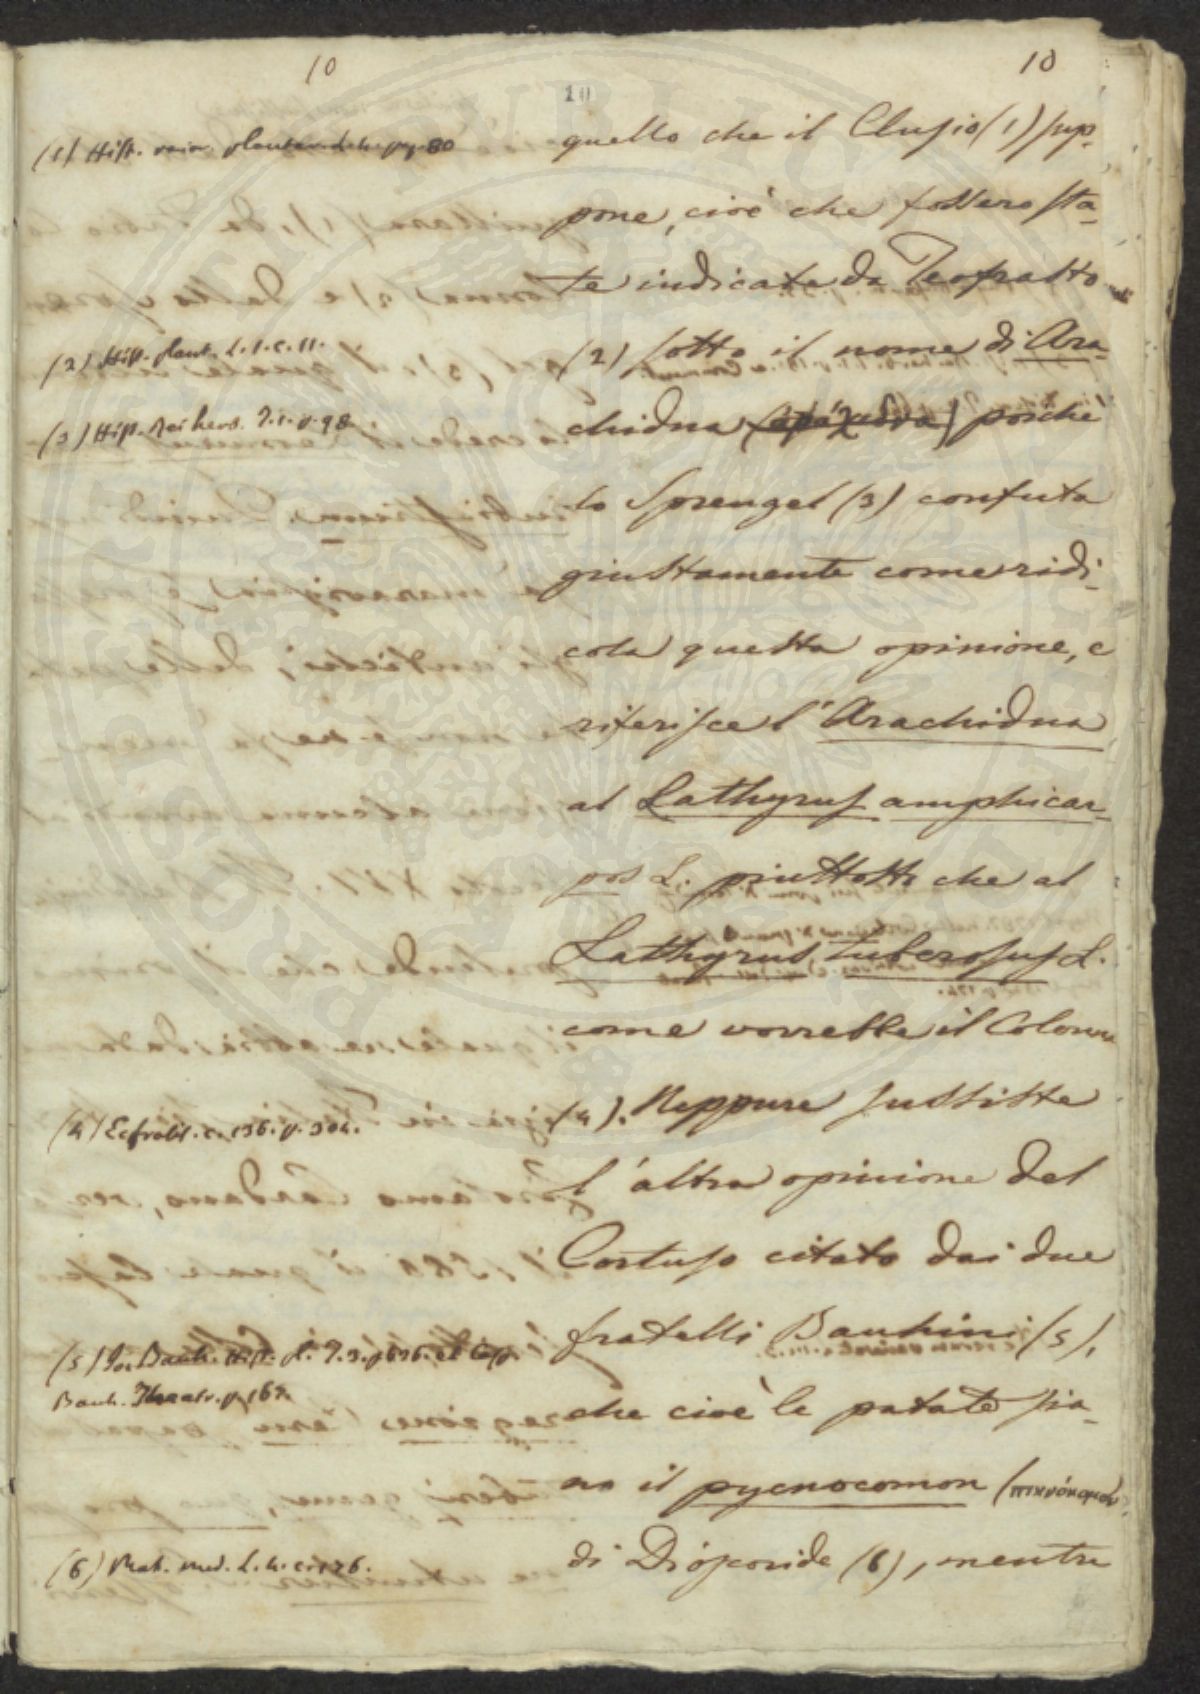 10
10
10
quello che il Clusio (1) sup-
pone, cioè che fossero sta-
te indicate da Teofrasto
(2) sotto il nome di Ara-
chidna (αράχιδνα) poichè
lo Sprengel (3) confuta
giustamente come ridi-
cola questa opinione, e
riferisce l'Arachidna
al Lathyrus amphicar-
pos L. piuttosto che al
Lathyrus tuberosus L.
come vorrebbe il Colonna
(4). Neppure sussiste
l'altra opinione del
Cortuso citato dai due
fratelli Bauhini (5),
che cioè le patate sia-
no il pycnocomon (πικνόκομον
di Dioscoride (6), mentre
(1) Hist. rarior. plantar. L. 4. pag. 80
(2) Hist. plant. L. 1. c. 11.
(3) Hist. Rei herb. T. 1. p. 98.
(4) Ecfrast. c. 136. p. 304.
(5) Jo. Bauh. Hist. pl. T. 3. p. 636. et Casp.
Bauh. Theatr. p. 167.
(6) Mat. med. L. 4. c. 176.